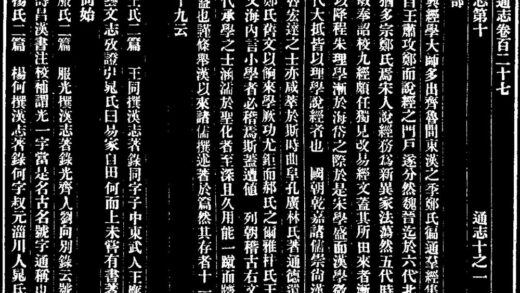 通志卷百二十七
志第十 通志十之一
部
興經學大師多出齊魯間東漢之季鄭氏徧通羣經
自王肅攻鄭而說經之門戶遂分然魏晉迄於六代北
猶多宗鄭氏焉宋人說經務為新異家法蕩然五代時
敏奉詔校九經頗任獨見改易經文蓋其所由來者漸
以降程朱理學漸於海岱之際於是宋學盛而漢學微
代大抵皆以理學說經者也 國朝乾嘉諸儒崇尚漢
宏達之士亦咸萃於斯時曲阜孔廣林氏著通德遺
鄭氏舊文以餉來學厥功尤鉅而郝氏之爾雅桂氏王
文海內言小學者必稽焉斯蓋遭値 列朝稽古右文
代承學之士涵濡於聖化者至深且久用能一蹴而躋
盛也謹條舉漢以來諸儒撰述著於篇然其存者十一
十九云
王氏二篇 王同撰漢志著錄同字子中東武人王應
藝文志攷證引晁氏曰易家自田何而上未嘗有書著
同始
服氏二篇 服光撰漢志著錄光齊人劉向別錄云號
壽昌漢書注校補謂光一字當是名古名號字通稱山
楊氏二篇 楊何撰漢志著錄何字叔元淄川人晁氏